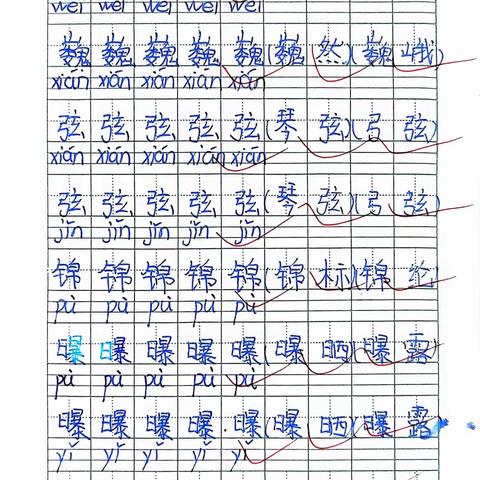 wei wei wei wei wei
巍 巍 巍 巍 巍(巍 然)(巍 峨)
xián xián xián xián xián
弦 弦 弦 弦 弦(琴 弦)(弓 弦)
xián xián xián xián xián
弦 弦 弦 弦 弦(琴 弦)(弓 弦)
jǐn jǐn jǐn jǐn jǐn
锦 锦 锦 锦 锦(锦 标)(锦 纶)
pù pù pù pù pù
曝 曝 曝 曝 曝(曝 晒)(曝 露)
pù pù pù pù pù
曝 曝 曝 曝 曝(曝 晒)(曝 露)
yǐ yǐ yǐ yǐ yǐ